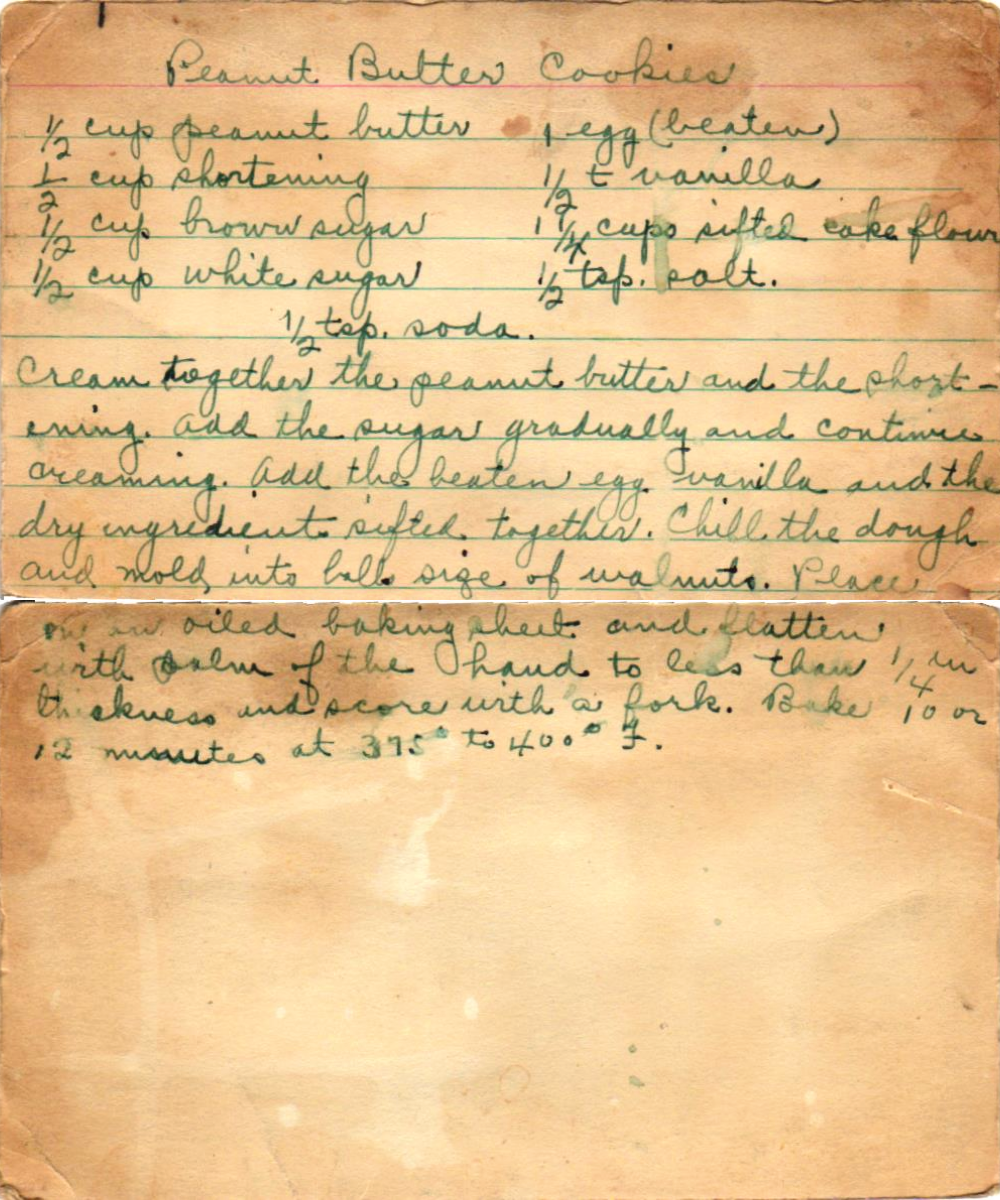 Peanut Butter Cookies
1/2 cup peanut butter 1 egg (beaten)
1/2 cup shortening 1/2 t vanilla
1/2 cup brown sugar 1 1/4 cups sifted cake flour
1/2 cup white sugar 1/2 tsp. salt.
1/2 tsp. soda.
Cream together the peanut butter and the short-
ening. Add the sugar gradually and continue
creaming. Add the beaten egg vanilla and the
dry ingredients sifted together. Chill the dough
and mold into balls size of walnuts. Place
on an oiled baking sheet and flatten
with palm of the hand to less than 1/4 in
thickness and score with a fork. Bake 10 or
12 minutes at 375° to 400° F.